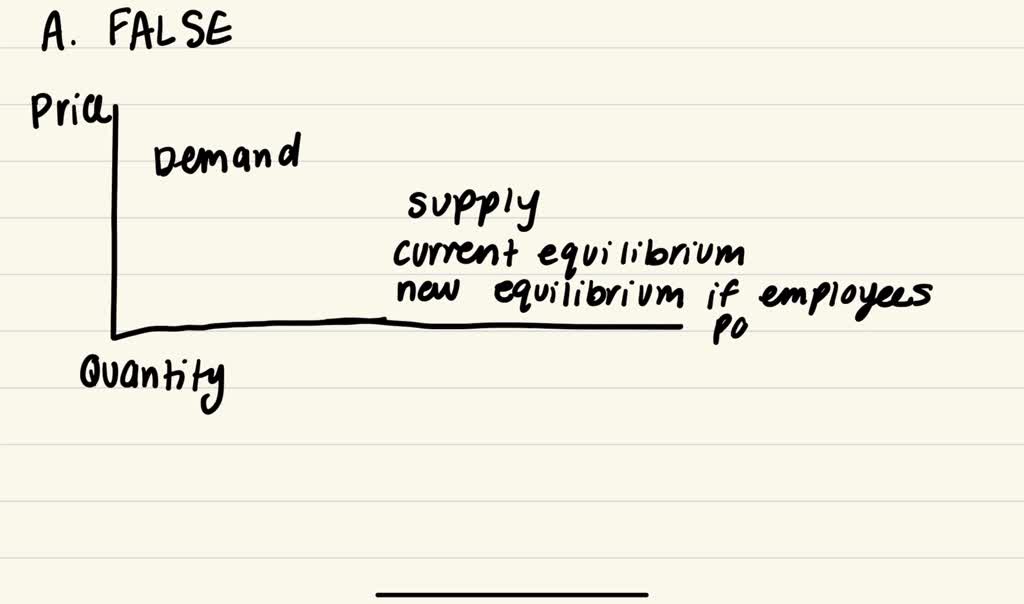 A. FALSE
Price
Demand
supply
current equilibrium
new equilibrium if employees
PO
Quantity